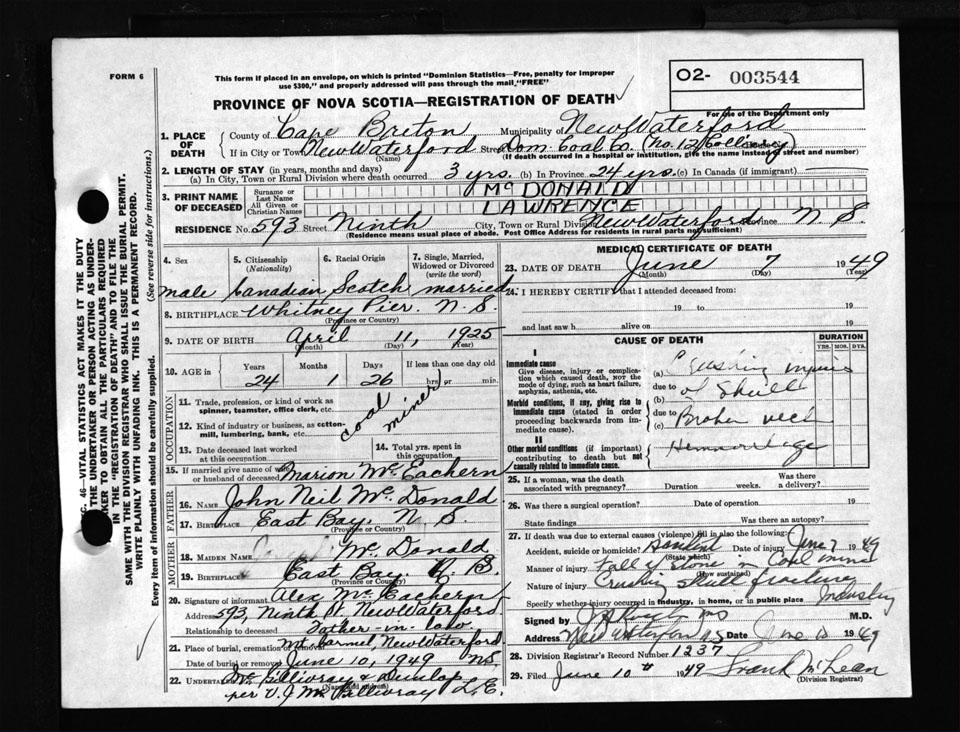 FORM 6
This form if placed in an envelope, on which is printed "Dominion Statistics—Free, penalty for improper
use $300," and properly addressed will pass through the mail, "FREE"
O2- 003544
For use of the Department only
PROVINCE OF NOVA SCOTIA—REGISTRATION OF DEATH
1. PLACE OF DEATH
County of Cape Breton Municipality of New Waterford
If in City or Town New Waterford Street Dom. Coal Co. (No. 12 Colliery)
(Name) (If death occurred in a hospital or institution, give the name instead of street and number)
2. LENGTH OF STAY (in years, months and days)
(a) In City, Town or Rural Division where death occurred 3 yrs. (b) In Province 24 yrs. (c) In Canada (if immigrant)
3. PRINT NAME OF DECEASED
Surname or Last Name McDONALD
All Given or Christian Names LAWRENCE
RESIDENCE No. 593 Street Ninth City, Town or Rural Division New Waterford Province N. S.
(Residence means usual place of abode. Post Office Address for residents in rural parts not sufficient)
4. Sex 5. Citizenship (Nationality) 6. Racial Origin 7. Single, Married, Widowed or Divorced (write the word)
male Canadian Scotch married
8. BIRTHPLACE Whitney Pier. N. S.
(Province or Country)
9. DATE OF BIRTH April 11, 1925
(Month) (Day) (Year)
10. AGE in Years Months Days If less than one day old
24 1 26 hrs. or min.
OCCUPATION
11. Trade, profession, or kind of work as spinner, teamster, office clerk, etc.
12. Kind of industry or business, as cotton-mill, lumbering, bank, etc.
coal miner
13. Date deceased last worked at this occupation
14. Total yrs. spent in this occupation
15. If married give name of wife or husband of deceased Marion McEachern
FATHER
16. NAME John Neil McDonald
17. BIRTHPLACE East Bay, N. S.
(Province or Country)
MOTHER
18. MAIDEN NAME McDonald
19. BIRTHPLACE East Bay
(Province or Country)
20. Signature of informant Alex McEachern
Address 593, Ninth St. New Waterford
Relationship to deceased Father-in-law.
21. Place of burial, cremation or removal Mt. Carmel, New Waterford
Date of burial or removal June 10, 1949 N.S.
22. UNDERTAKER McGillivray & Dunlop
(Name and address)
per V. J. McGillivray L.E.
MEDICAL CERTIFICATE OF DEATH
23. DATE OF DEATH June 7 1949
(Month) (Day) (Year)
24. I HEREBY CERTIFY that I attended deceased from:
19 to 19
and last saw h alive on 19
CAUSE OF DEATH DURATION
YRS. MOS. DYS.
I
Immediate cause
Give disease, injury or complication which caused death, NOT the mode of dying, such as heart failure, asphyxia, asthenia, etc.
(a) Crushing injuries
due to of Skull
(b)
Morbid conditions, if any, giving rise to immediate cause (stated in order proceeding backwards from immediate cause).
due to Broken neck
(c)
II
Other morbid conditions (if important) contributing to death but not causally related to immediate cause.
Hemorrhage
25. If a woman, was the death associated with pregnancy? Duration weeks. Was there a delivery?
26. Was there a surgical operation? Date of operation 19
State findings Was there an autopsy?
27. If death was due to external causes (violence) fill in also the following:
Accident, suicide or homicide? Accident Date of injury June 7 1949
(State which)
Manner of injury Fall of stone in Coal mine
(How sustained)
Nature of injury Crushing Skull fracture
Specify whether injury occurred in industry, in home, or in public place Industry
Signed by M.D.
Address New Waterford N.S. Date June 10 1949
28. Division Registrar's Record Number 1237
29. Filed June 10th 1949 Frank McLean
(Division Registrar)
46.—VITAL STATISTICS ACT MAKES IT THE DUTY
THE UNDERTAKER OR PERSON ACTING AS UNDER-
KER TO OBTAIN ALL THE PARTICULARS REQUIRED
IN THE "REGISTRATION OF DEATH" AND TO FILE THE
SAME WITH THE DIVISION REGISTRAR WHO SHALL ISSUE THE BURIAL PERMIT.
WRITE PLAINLY WITH UNFADING INK. THIS IS A PERMANENT RECORD.
Every item of information should be carefully supplied. (See reverse side for instructions.)